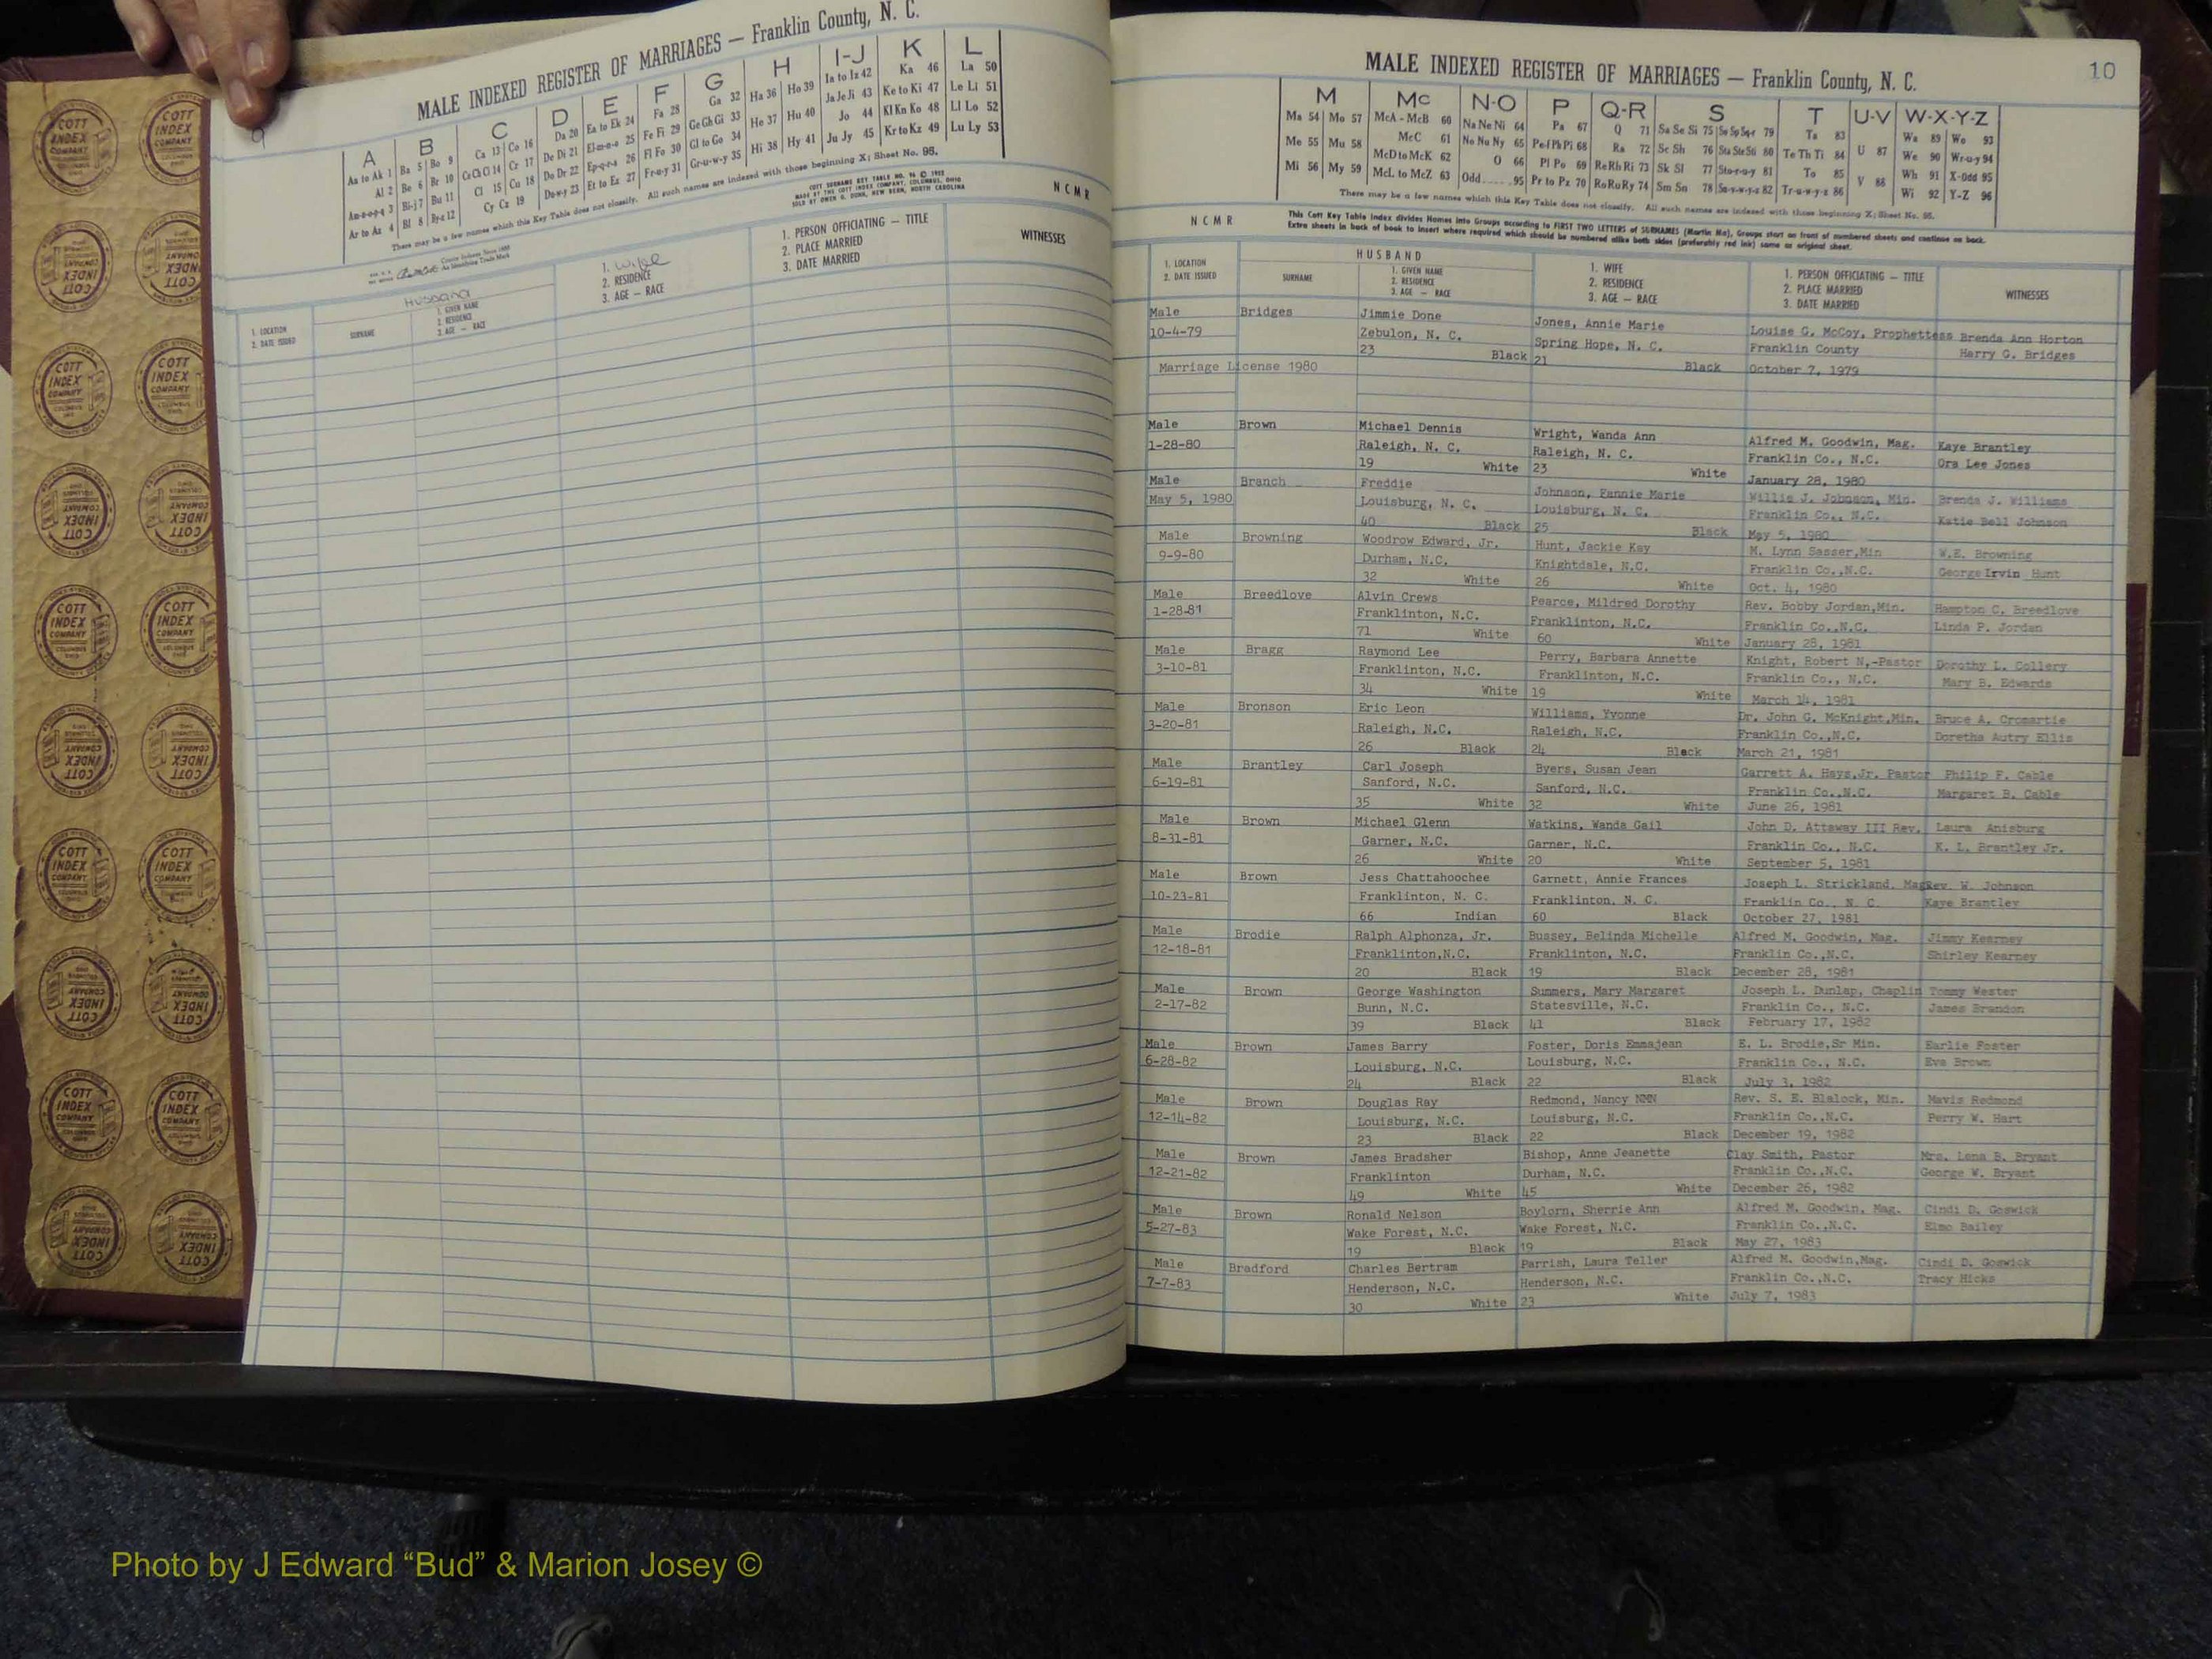 9
MALE INDEXED REGISTER OF MARRIAGES — Franklin County, N. C.
A B C D E F G H I-J K L
Aa to Ak 1 Ba 5 Bo 9 Ca 13 Co 16 Da 20 Ea to Ek 24 Fa 28 Ga 32 Ha 36 Ho 39 Ia to Iz 42 Ka 46 La 50
Al 2 Be 6 Br 10 Ce Ch Ci 14 Cr 17 De Di 21 El-m-n-o 25 Fe Fi 29 Ge Gh Gi 33 He 37 Hu 40 Ja Je Ji 43 Ke to Ki 47 Le Li 51
Am-n-o-p-q 3 Bi-j 7 Bu 11 Cl 15 Cu 18 Do Dr 22 Ep-q-r-s 26 Fl Fo 30 Gl to Go 34 Hi 38 Hy 41 Jo 44 Kl Kn Ko 48 Ll Lo 52
Ar to Az 4 Bl 8 By-z 12 Cy Cz 19 Du-w-y 23 Et to Ez 27 Fr-u-y 31 Gr-u-w-y 35 Ju Jy 45 Kr to Kz 49 Lu Ly 53
There may be a few names which this Key Table does not classify. All such names are indexed with those beginning X; Sheet No. 96.
COTT SURNAME KEY TABLE NO. 96
MADE BY THE COTT INDEX COMPANY, COLUMBUS, OHIO
SOLD BY OWEN G. DUNN, NEW BERN, NORTH CAROLINA
N C M R
Husband
1. LOCATION
2. DATE ISSUED
SURNAME
1. GIVEN NAME
2. RESIDENCE
3. AGE — RACE
1. wife
2. RESIDENCE
3. AGE — RACE
1. PERSON OFFICIATING - TITLE
2. PLACE MARRIED
3. DATE MARRIED
WITNESSES
COTT INDEX COMPANY
10
MALE INDEXED REGISTER OF MARRIAGES — Franklin County, N. C.
M Mc N-O P Q-R S T U-V W-X-Y-Z
Ma 54 Mo 57 McA - McB 60 Na Ne Ni 64 Pa 67 Q 71 Sa Se Si 75 So Sp Sq-r 79 Ta 83 U 87 Wa 89 Wo 93
Me 55 Mu 58 McC 61 No Nu Ny 65 Pe-f Ph Pi 68 Ra 72 Sc Sh 76 Sta Ste Sti 80 Te Th Ti 84 V 88 We 90 Wr-u-y 94
Mi 56 My 59 McD to McK 62 O 66 Pl Po 69 Re Rh Ri 73 Sk Sl 77 Sto-r-u-y 81 To 85 Wh 91 X-Odd 95
McL to McZ 63 Odd 95 Pr to Pz 70 Ro Ru Ry 74 Sm Sn 78 Su-v-w-y-z 82 Tr-u-w-y-z 86 Wi 92 Y-Z 96
There may be a few names which this Key Table does not classify. All such names are indexed with those beginning X; Sheet No. 96.
N C M R
This Cott Key Table Index divides Names into Groups according to FIRST TWO LETTERS of SURNAMES (Martin Ma), Groups start on front of numbered sheets and continue on back.
Extra sheets in back of book to insert where required which should be numbered alike both sides (preferably red ink) same as original sheet.
HUSBAND
1. LOCATION
2. DATE ISSUED
SURNAME
1. GIVEN NAME
2. RESIDENCE
3. AGE — RACE
1. WIFE
2. RESIDENCE
3. AGE — RACE
1. PERSON OFFICIATING - TITLE
2. PLACE MARRIED
3. DATE MARRIED
WITNESSES
Male Bridges Jimmie Done Jones, Annie Marie Louise G. McCoy, Prophettess Brenda Ann Horton
10-4-79 Zebulon, N. C. Spring Hope, N. C. Franklin County Harry G. Bridges
23 Black 21 Black October 7, 1979
Marriage License 1980
Male Brown Michael Dennis Wright, Wanda Ann Alfred M. Goodwin, Mag. Kaye Brantley
1-28-80 Raleigh, N. C. Raleigh, N. C. Franklin Co., N.C. Ora Lee Jones
19 White 23 White January 28, 1980
Male Branch Freddie Johnson, Fannie Marie Willie J. Johnson, Min. Brenda J. Williams
May 5, 1980 Louisburg, N. C. Louisburg, N. C. Franklin Co., N.C. Katie Bell Johnson
40 Black 25 Black May 5, 1980
Male Browning Woodrow Edward, Jr. Hunt, Jackie Kay M. Lynn Sasser,Min W.E. Browning
9-9-80 Durham, N.C. Knightdale, N.C. Franklin Co.,N.C. George Irvin Hunt
32 White 26 White Oct. 4, 1980
Male Breedlove Alvin Crews Pearce, Mildred Dorothy Rev. Bobby Jordan,Min. Hampton C. Breedlove
1-28-81 Franklinton, N.C. Franklinton, N.C. Franklin Co.,N.C. Linda P. Jordan
71 White 60 White January 28, 1981
Male Bragg Raymond Lee Perry, Barbara Annette Knight, Robert N,-Pastor Dorothy L. Collery
3-10-81 Franklinton, N.C. Franklinton, N.C. Franklin Co., N.C. Mary B. Edwards
34 White 19 White March 14, 1981
Male Bronson Eric Leon Williams, Yvonne Dr. John G. McKnight,Min. Bruce A. Cromartie
3-20-81 Raleigh, N.C. Raleigh, N.C. Franklin Co.,N.C. Doretha Autry Ellis
26 Black 24 Black March 21, 1981
Male Brantley Carl Joseph Byers, Susan Jean Garrett A. Hays,Jr. Pastor Philip F. Cable
6-19-81 Sanford, N.C. Sanford, N.C. Franklin Co.,N.C. Margaret B. Cable
35 White 32 White June 26, 1981
Male Brown Michael Glenn Watkins, Wanda Gail John D. Attaway III Rev. Laura Anisburg
8-31-81 Garner, N.C. Garner, N.C. Franklin Co., N.C. K. L. Brantley Jr.
26 White 20 White September 5, 1981
Male Brown Jess Chattahoochee Garnett, Annie Frances Joseph L. Strickland, Mag Rev. W. Johnson
10-23-81 Franklinton, N. C. Franklinton, N. C. Franklin Co., N. C. Kaye Brantley
66 Indian 60 Black October 27, 1981
Male Brodie Ralph Alphonza, Jr. Bussey, Belinda Michelle Alfred M. Goodwin, Mag. Jimmy Kearney
12-18-81 Franklinton,N.C. Franklinton, N.C. Franklin Co.,N.C. Shirley Kearney
20 Black 19 Black December 28, 1981
Male Brown George Washington Summers, Mary Margaret Joseph L. Dunlap, Chaplin Tommy Wester
2-17-82 Bunn, N.C. Statesville, N.C. Franklin Co., N.C. James Brandon
39 Black 41 Black February 17, 1982
Male Brown James Barry Foster, Doris Emmajean E. L. Brodie,Sr Min. Earlie Foster
6-28-82 Louisburg, N.C. Louisburg, N.C. Franklin Co., N.C. Eve Brown
24 Black 22 Black July 3, 1982
Male Brown Douglas Ray Redmond, Nancy NMN Rev. S. E. Blalock, Min. Mavis Redmond
12-14-82 Louisburg, N.C. Louisburg, N.C. Franklin Co.,N.C. Perry W. Hart
23 Black 22 Black December 19, 1982
Male Brown James Bradsher Bishop, Anne Jeanette Clay Smith, Pastor Mrs. Lena B. Bryant
12-21-82 Franklinton Durham, N.C. Franklin Co.,N.C. George W. Bryant
49 White 45 White December 26, 1982
Male Brown Ronald Nelson Boylorn, Sherrie Ann Alfred M. Goodwin, Mag. Cindi D. Goswick
5-27-83 Wake Forest, N.C. Wake Forest, N.C. Franklin Co.,N.C. Elmo Bailey
19 Black 19 Black May 27, 1983
Male Bradford Charles Bertram Parrish, Laura Teller Alfred M. Goodwin,Mag. Cindi D. Goswick
7-7-83 Henderson, N.C. Henderson, N.C. Franklin Co.,N.C. Tracy Hicks
30 White 23 White July 7, 1983
Photo by J Edward “Bud” & Marion Josey ©